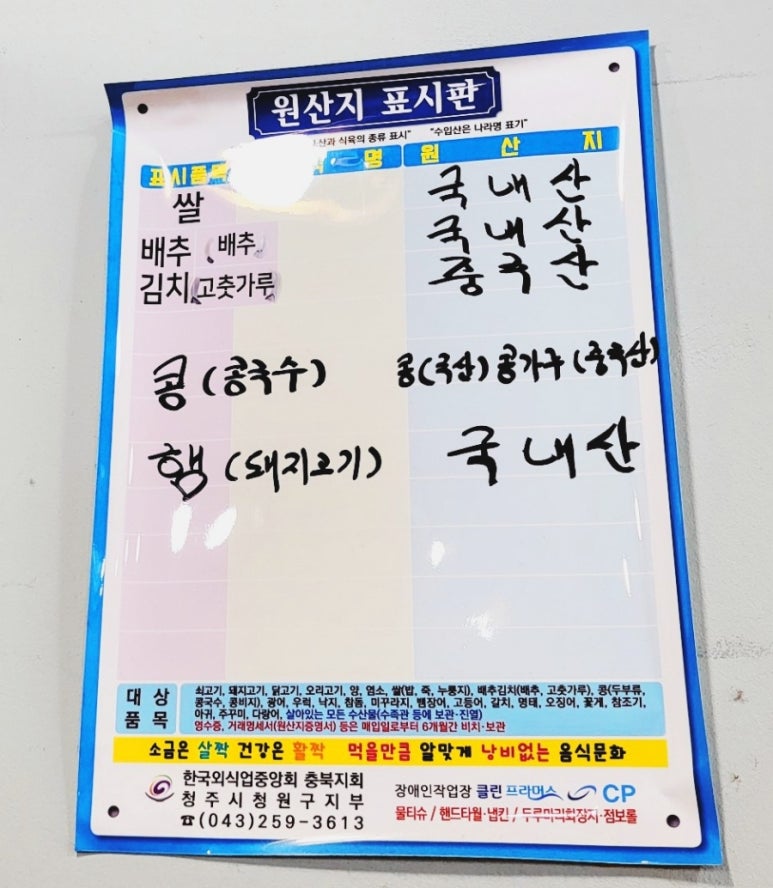 원산지 표시판
식육의 종류 표시" "수입산은 나라명 표기"
표시품목 명 원 산 지
쌀 국내산
배추 (배추) 국내산
김치 고춧가루 중국산
콩(콩국수) 콩(국산) 콩가루(중국산)
햄(돼지고기) 국내산
대상 품목
쇠고기, 돼지고기, 닭고기, 오리고기, 양, 염소, 쌀(밥, 죽, 누룽지), 배추김치(배추, 고춧가루), 콩(두부류,
콩국수, 콩비지), 광어, 우럭, 낙지, 참돔, 미꾸라지, 뱀장어, 고등어, 갈치, 명태, 오징어, 꽃게, 참조기,
아귀, 주꾸미, 다랑어, 살아있는 모든 수산물(수족관 등에 보관·진열)
영수증, 거래명세서(원산지증명서) 등은 매입일로부터 6개월간 비치·보관
소금은 살짝 건강은 활짝 먹을만큼 알맞게 낭비없는 음식문화
한국외식업중앙회 충북지회
청주시청원구지부
☎(043)259-3613
장애인작업장 클린 프라머스 CP
물티슈 / 핸드타월·냅킨 / 두루마리화장지·점보롤